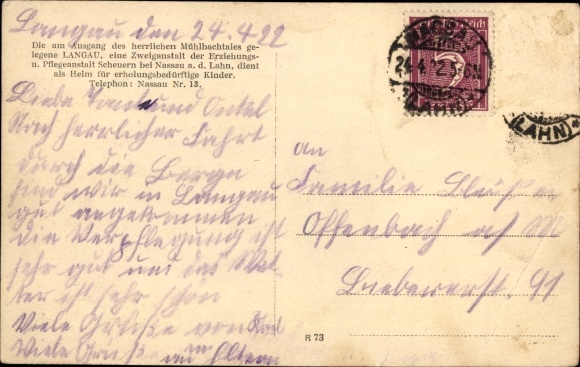 Langau den 24.4.22
Die am Ausgang des herrlichen Mühlbachtales ge-
legene LANGAU, eine Zweiganstalt der Erziehungs-
u. Pflegeanstalt Scheuern bei Nassau a. d. Lahn, dient
als Heim für erholungsbedürftige Kinder.
Telephon: Nassau Nr. 13.
Liebe Tante und Onkel
Nach herrlicher Fahrt
durch die Berge
sind wir in Langau
gut angekommen
die Verpflegung ist
sehr gut und das Wet-
ter ist sehr schön
Viele Grüße von Karl
Viele Grüße an Eltern
NASSAU
24.4.2
(LAHN)
5
(LAHN)
An
Familie
Offenbach a/M
91
R 73